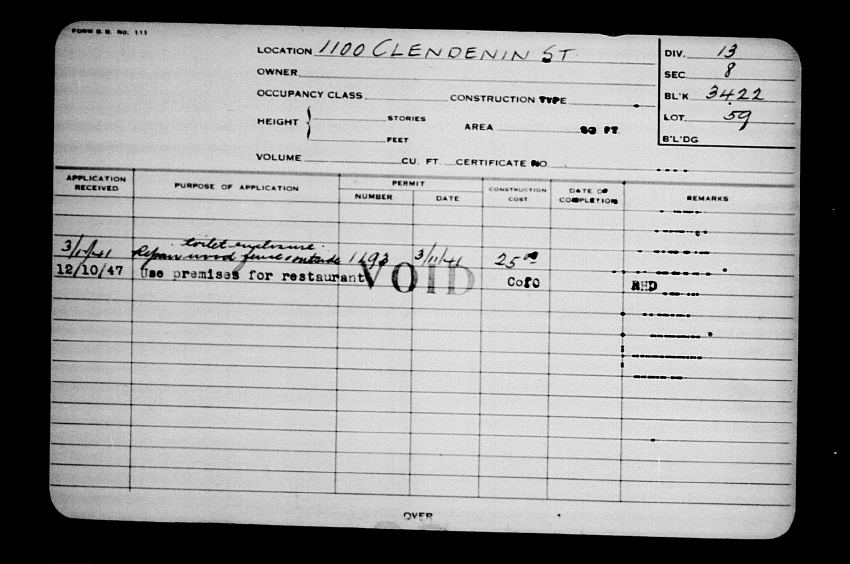 FORM B.B. No. 111
LOCATION 1100 CLENDENIN ST. DIV. 13
OWNER SEC. 8
OCCUPANCY CLASS CONSTRUCTION TYPE BL'K 3422
HEIGHT STORIES AREA SQ. FT. LOT 59
FEET B'L'DG
VOLUME CU. FT. CERTIFICATE NO.
APPLICATION RECEIVED PURPOSE OF APPLICATION PERMIT NUMBER DATE CONSTRUCTION COST DATE OF COMPLETION REMARKS
toilet enclosure
3/11/41 Repair wood fence outside 1493 3/11/41 25 00
12/10/47 Use premises for restaurant VOID CofO RHD
OVER